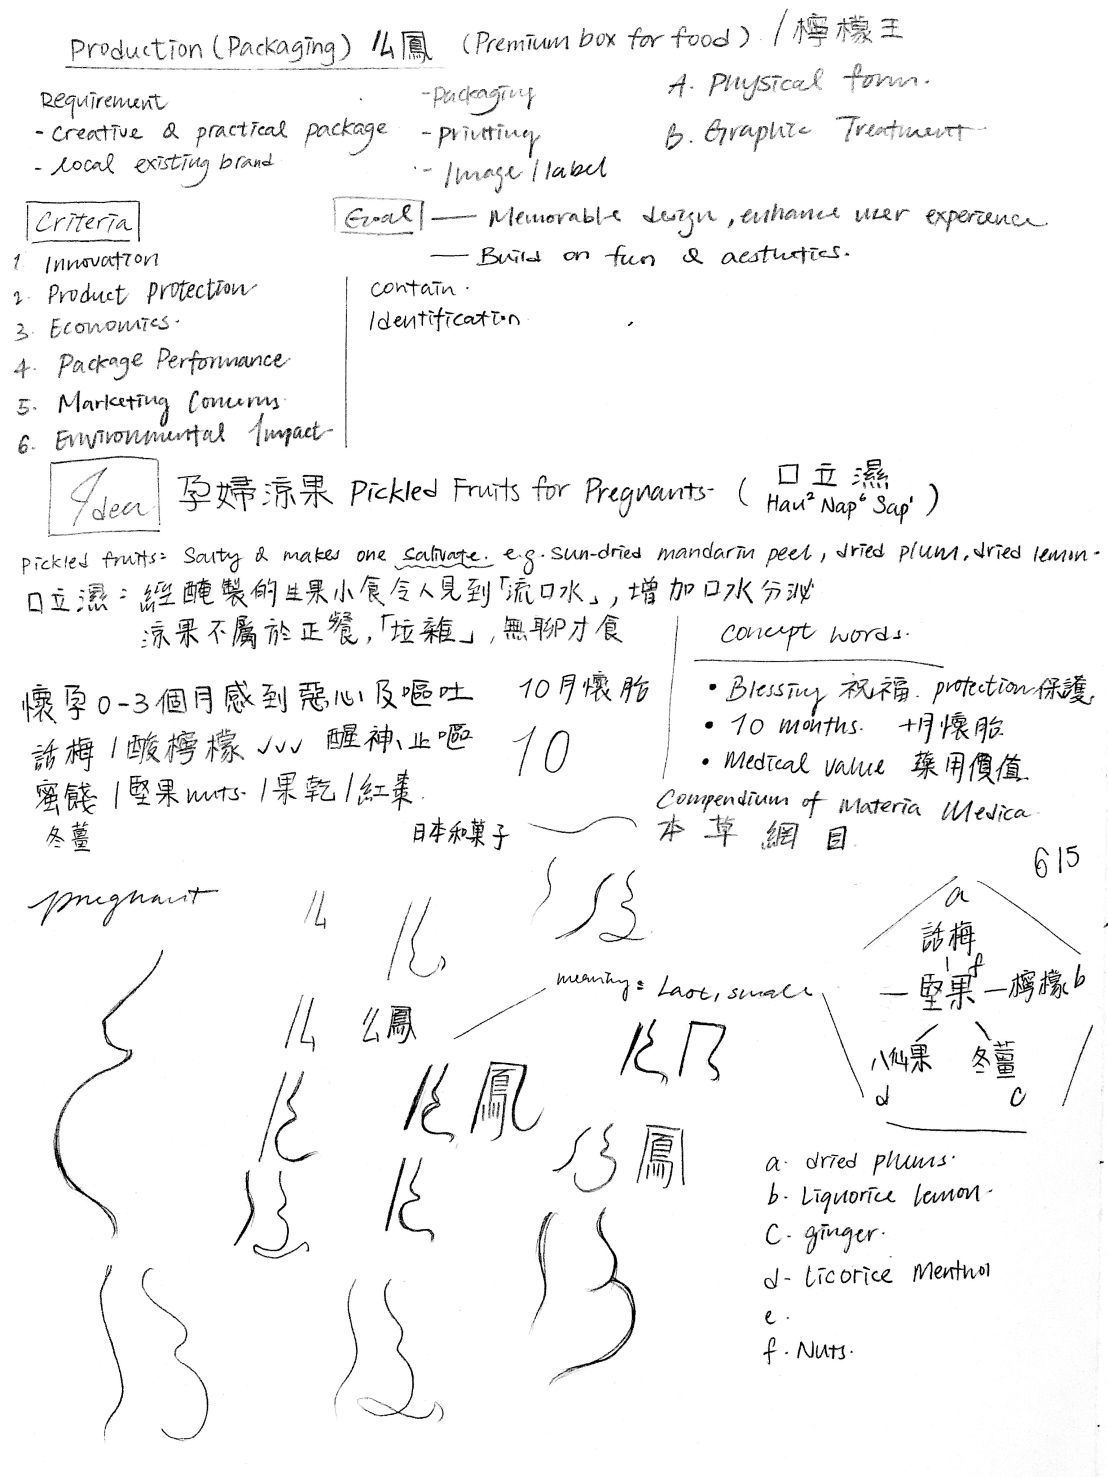 Production (Packaging) 么鳳 (Premium box for food) / 檸檬王
Requirement
- Creative & practical package
- local existing brand
- Packaging
- printing
- Image / label
A. Physical form.
B. Graphic Treatment
Criteria
1. Innovation
2. Product Protection
3. Economics.
4. Package Performance
5. Marketing Concerns
6. Environmental Impact
Goal — Memorable design, enhance user experience
— Build on fun & aesthetics.
contain.
Identification
Idea 孕婦涼果 Pickled Fruits for Pregnants (口立濕
Hau² Nap⁶ Sap¹)
Pickled fruits: Salty & makes one salivate. e.g. sun-dried mandarin peel, dried plum, dried lemon.
口立濕: 經醃製的生果小食令人見到「流口水」, 增加口水分泌
涼果不屬於正餐,「垃雜」, 無聊才食
懷孕0-3個月感到惡心及嘔吐
話梅 / 酸檸檬 ✓✓✓ 醒神、止嘔
蜜餞 / 堅果 nuts / 果乾 / 紅棗
冬薑
10月懷胎
10
日本和菓子
concept words.
• Blessing 祝福. protection 保護
• 10 months. 十月懷胎
• Medical value 藥用價值
Compendium of Materia Medica
本草綱目
615
pregnant
么
么
么鳳
meaning: Last, small
鳳
鳳
a
話梅
f
堅果 — 檸檬 b
八仙果 冬薑
d c
a. dried plums.
b. Liquorice lemon.
C. ginger.
d- Licorice Menthol
e.
f. Nuts.